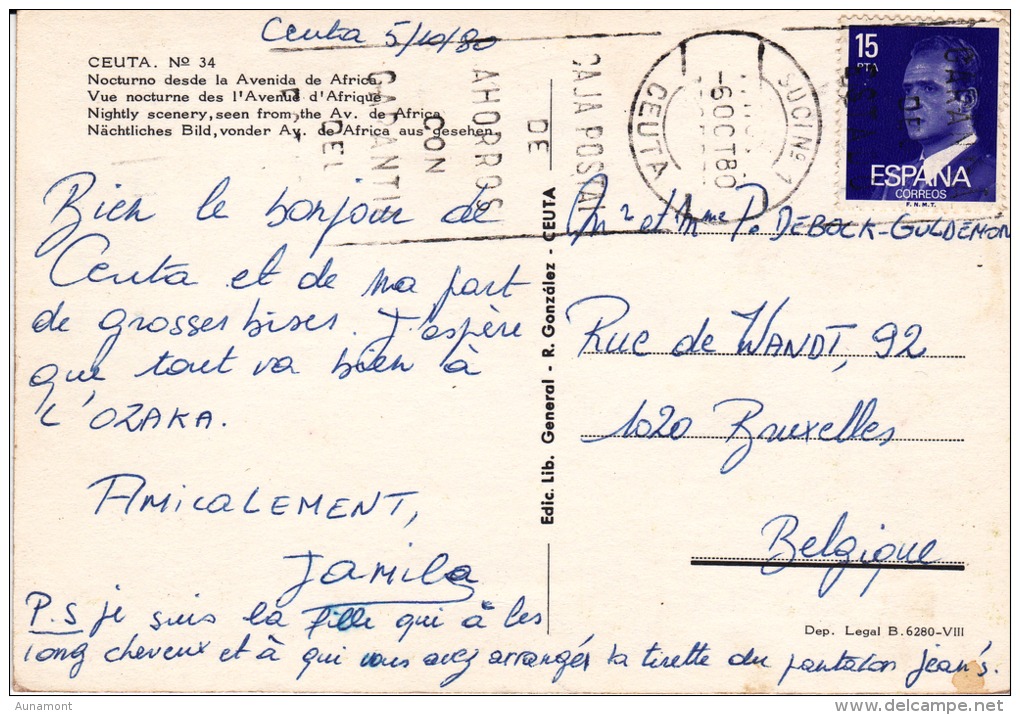 Ceuta 5/10/80
CEUTA. Nº 34
Nocturno desde la Avenida de Africa
Vue nocturne des l'Avenue d'Afrique
Nightly scenery, seen from the Av. de Africa
Nächtliches Bild, vonder Av. de Africa aus gesehen
Bien le bonjour de
Ceuta et de ma part
de grosses bises. J'espère
que tout va bien à
L'OZAKA.
AMICALEMENT,
Jamila
P.S je suis la fille qui à les
long cheveux et à qui vous avez arrangér la tirette du pantalon jean's.
Edic. Lib. General - R. González - CEUTA
CAJA POSTAL
DE
AHORROS
CON
GARANTI
DEL
SUC Nº 1
-6 OCT 80
CEUTA
15
PTA
ESPAÑA
CORREOS
F.N.M.T.
Mr et Mme P. DEBOCK-GULDEMON
Rue de WANDT, 92
1020 Bruxelles
Belgique
Dep. Legal B. 6280-VIII
Aunamont
delcampe.net